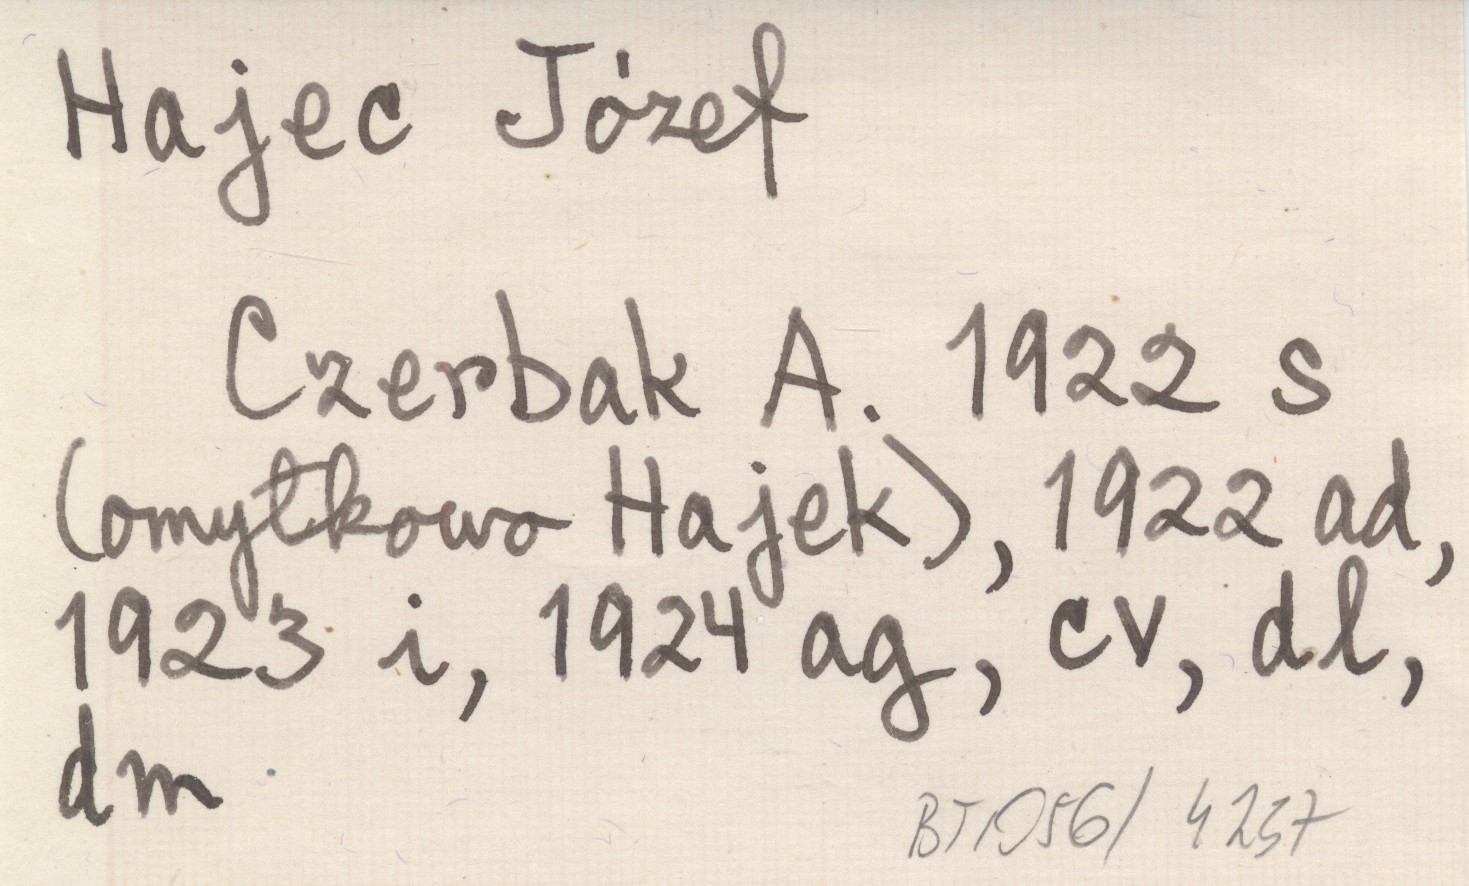 Hajec Józef
Czerbak A. 1922 s
(omyłkowo Hajek), 1922 ad,
1923 i, 1924 ag, cv, dl,
dm
4257